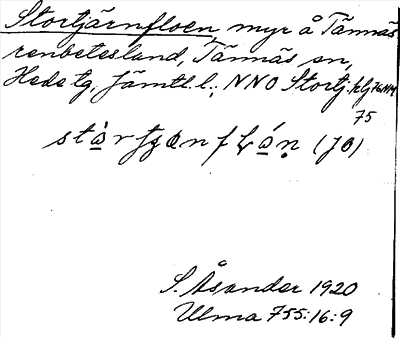 Stortjärnfloen myr å Tännäs
renbetesland, Tännäs sn,
Hede tg, Jämtl. l.; NNO Stortj.
75
(JÖ)
S. Åsander 1920
Ulma 755:16:9